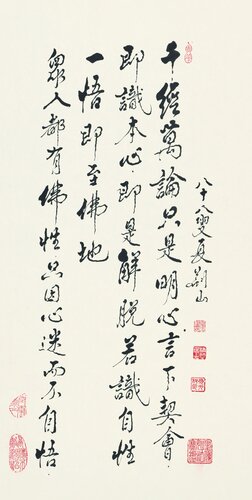 八十八叟夏荆山
千經萬論只是明心言下契會
即識本心即是解脫若識自性
一悟即至佛地
眾人都有佛性只因心迷而不自悟